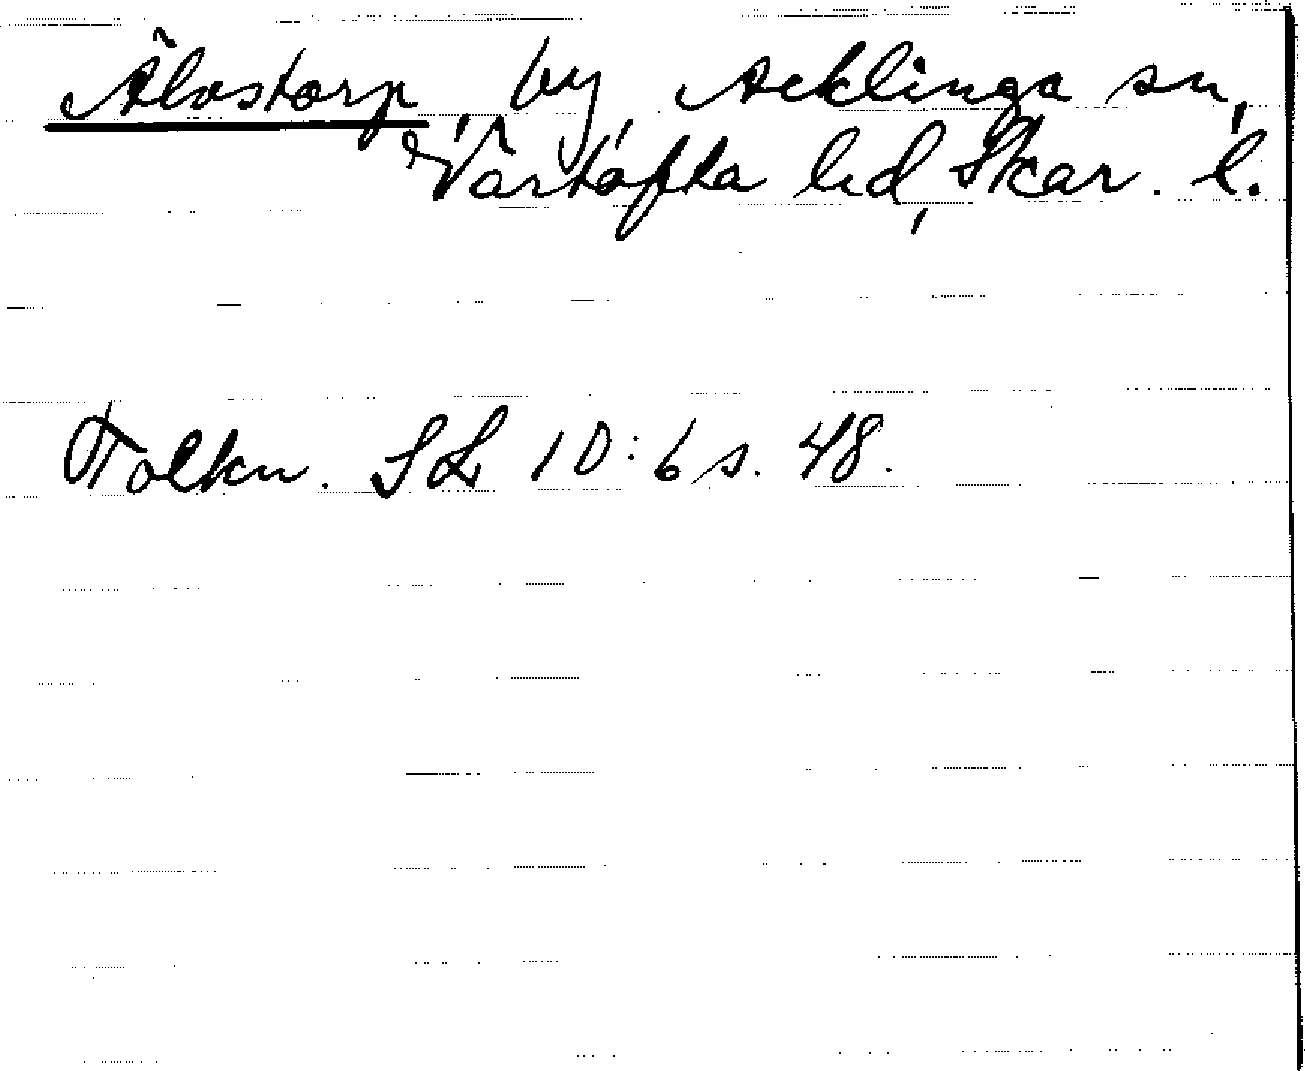 Älvstorp, by, Acklinga sn,
Vartofta hd, Skar. l.
Tolkn. SL 10:6 s. 48.